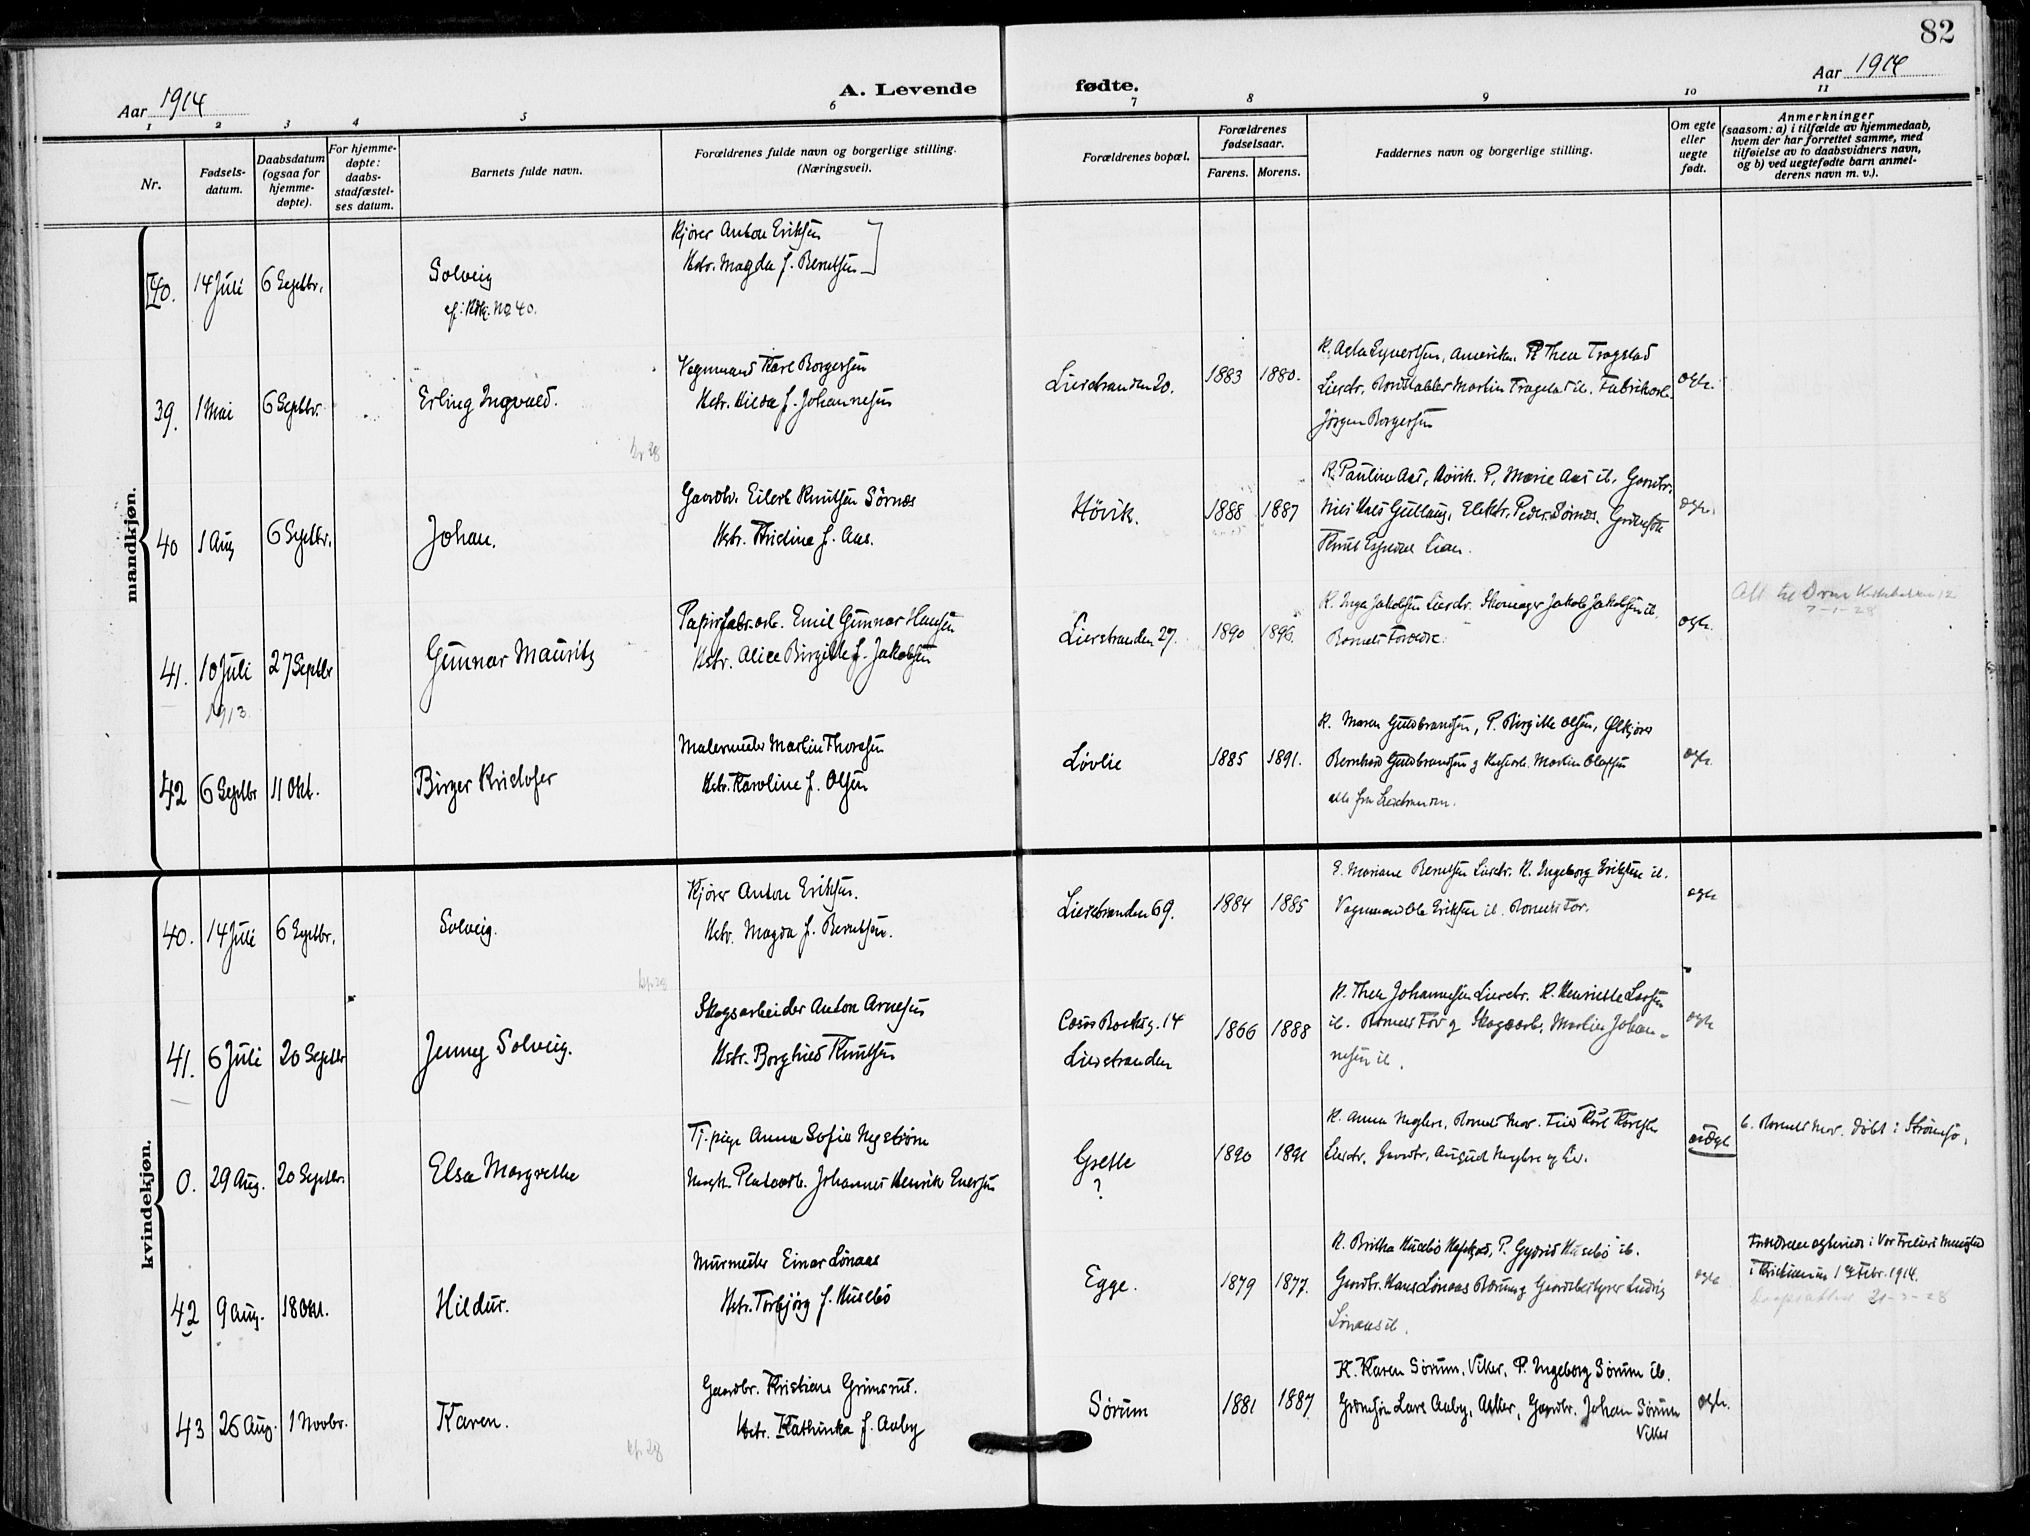 82
Aar 1914
A. Levende fødte.
Aar 1914
1 2 3 4 5 6 7 8 9 10 11
Nr.
Fødsels-
datum.
Daabsdatum
(ogsaa for
hjemme-
døpte).
For hjemme-
døpte:
daabs-
stadfæstel-
ses datum.
Barnets fulde navn.
Forældrenes fulde navn og borgerlige stilling.
(Næringsvei).
Forældrenes bopæl.
Forældrenes
fødselsaar.
Farens. Morens.
Faddernes navn og borgerlige stilling.
Om egte
eller
uegte
født.
Anmerkninger
(saasom: a) i tilfælde av hjemmedaab,
hvem der har forrettet samme, med
tilføielse av to daabsvidners navn,
og b) ved uegtefødte barn anmel-
derens navn m. v.).
mandkjøn.
40. 14 Juli 6 Septbr. Solveig
No 40.
Kjører Anton Eriksen
Hstr. Magda f. Berntsen
39. 1 Mai 6 Septbr. Erling Ingvald.
Vognmand Karl Borgersen
Hstr. Hilda f. Johannesen
Lierstranden 20. 1883 1880.
K. Asta Syvertsen, Amerika. P. Thea Tragstad
Lierstr. Martin Tragstad ib. Fabrikarb.
Jørgen Borgersen
egte.
40 1 Aug 6 Septbr. Johan.
Gaardbr. Eilert Knutsen Sørnæs
Hstr. Kristine f. Aas.
Høvik. 1888 1887
K. Pauline Aas, Høvik. P. Marie Aas ib. Gaardbr.
Nils Gullaug, Elektr. Peder Sørnæs.
Knut Lian.
egte.
41. 10 Juli 1913. 27 Septbr Gunnar Mauritz
Papirfabr.arb. Emil Gunnar Hansen
Hstr. Alice Birgitte f. Jakobsen
Lierstranden 27. 1890 1896
K. Inga Jakobsen Lierstr. Skomager Jakob Jakobsen ib.
Barnets Forældre.
egte.
7-1-28
42 6 Septbr 11 Okt. Birger Kristofer
Malermester Martin Thoresen
Hstr. Karoline f. Olsen
Løvlie 1885 1891.
K. Maren Guldbrandsen, P. Birgitte Olsen, Ølkjører
Bernhard Guldbrandsen g Martin Olafsen
alle fra Lierstranden.
egte.
kvindekjøn.
40. 14 Juli 6 Septbr. Solveig.
Kjører Anton Eriksen.
Hstr. Magda f. Berntsen.
Lierstranden 69. 1884 1885
E. Mariane Berntsen Lierstr. K. Ingeborg Eriksen ib.
Vognmand Ole Eriksen ib. Barnets Far.
egte
41. 6 Juli 20 Septbr Jenny Solveig.
Skogsarbeider Anton Arnesen
Hstr. Borghild Knutsen
14
Lierstranden
1866 1888
K. Thea Johannesen Lierstr. K. Henriette Larsen
ib. Barnets Far g Skogsarb. Martin Johan-
nesen ib.
egte
0. 29 Aug. 20 Septbr. Elsa Margrethe
Tj. pige Anna Sofie Nystrøm
Johannes Henrik Enersen
Grette
?
1890 1891
K. Anna Neglen, Barnets Mor. Karl Karlsen
Lierstr. Gaardbr. August
uegte
b. Barnets Mor. døbt i Strømsø.
42 9 Aug. 18 Okt. Hildur.
Murmester Einar Lønaas
Hstr. Torbjørg f. Husebø
Egge. 1879 1877.
K. Britha Husebø P. Gydrid Husebø ib.
Gaardbr. Hans Lønaas Gaardbestyrer Ludvig
Lønaas ib.
egte
Forældrene egteviede i Vor Frelsers Menighed
i Kristiania Febr. 1914.
21-3-28
43 26 Aug. 1 Novbr. Karen.
Gaardbr. Kristian Grimsrud.
Hstr. Kathinka f. Aaby
Sørum 1881 1887
K. Karen Sørum, Viker, P. Ingeborg Sørum ib.
Lars Aaby, Asker, Gaardbr. Johan Sørum
Viker
egte.